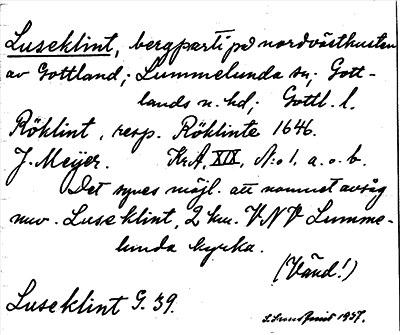 Luseklint, bergparti på nordvästkusten
av Gottland; Lummelunda sn; Gott-
lands n. hd; Gottl. l.
Röklint, resp. Röklinte 1646.
J. Meyer. Kr.A, XIX, N:o 1, a. o. b.
Det synes möjl. att namnet avsåg
nuv. Luseklint, 2 km. V.N.V Lumme-
lunda kyrka.
(Vänd!)
Luseklint G. 39.
1937.